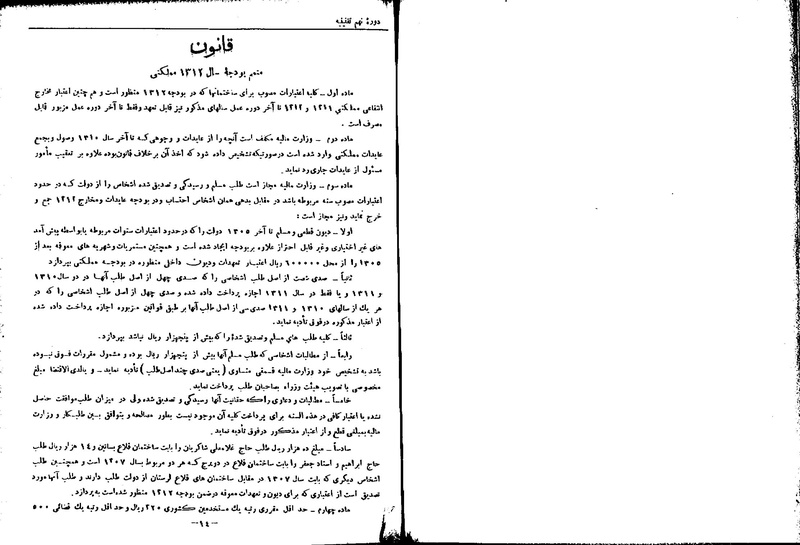 دورهٔ نهم تقنینیه
قانون
متمم بودجهٔ سال ۱۳۱۲ مملکتی
ماده اول – کلیه اعتبارات مصوب برای ساختمانها که در بودجه ۱۳۱۲ منظور است و هم چنین اعتبار مخارج
انتفاعی مملکتی ۱۳۱۱ و ۱۳۱۲ تا آخر دوره عمل سالهای مذکور نیز قابل تعهد وفقط تا آخر دوره عمل مزبور قابل
مصرف است .
ماده دوم – وزارت مالیه مکلف است آنچه را از عایدات و وجوهی که تا آخر سال ۱۳۱۰ وصول و بجمع
عایدات مملکتی وارد شده است درصورتیکه تشخیص داده شود که اخذ آن برخلاف قانون بوده علاوه بر تعقیب مأمور
مسئول از عایدات جاری رد نماید .
ماده سوم – وزارت مالیه مجاز است طلب مسلم و رسیدگی و تصدیق شده اشخاص را از دولت که در حدود
اعتبارات مصوب سنه مربوطه باشد در مقابل بدهی همان اشخاص احتساب ودر بودجه عایدات ومخارج ۱۳۱۲ جمع و
خرج نماید ونیز مجاز است :
اولا – دیون قطعی و مسلم تا آخر ۱۳۰۵ دولت را که درحدود اعتبارات سنوات مربوطه یا بواسطه پیش آمد
های غیر اختیاری و غیر قابل احتراز علاوه بربودجه ایجاد شده است و همچنین مستمریات وشهریه های معوقه بعد از
۱۳۰۵ را از محل ۶۰۰۰۰۰۰ ریال اعتبار تعهدات ودیون داخلی منظوره در بودجه مملکتی بپردازد
ثانیاً – صدی شصت از اصل طلب اشخاصی را که صدی چهل از اصل طلب آنها در دو سال ۱۳۱۰
و ۱۳۱۱ و یا فقط در سال ۱۳۱۱ اجازه پرداخت داده شده و صدی چهل از اصل طلب اشخاصی را که در
هر یک از سالهای ۱۳۱۰ و ۱۳۱۱ صدی سی از اصل طلب آنها بر طبق قوانین مزبوره اجازه پرداخت داده شده
از اعتبار مذکوره درفوق تأدیه نماید .
ثالثاً – کلیه طلب های مسلم وتصدیق شدهٔ را که بیش از پنجهزار ریال نباشد بپردازد .
رابعاً – از مطالبات اشخاصی که طلب مسلم آنها بیش از پنجهزار ریال بوده و مشمول مقررات فوق نبوده
باشد به تشخیص خود وزارت مالیه قسمتی متساوی ( یعنی صدی چند اصل طلب ) تأدیه نماید – و یا لدی الاقتضا مبلغ
مخصوصی با تصویب هیئت وزراء بصاحبان طلب پرداخت نماید .
خامساً – مطالبات و دعاوی را که حقانیت آنها رسیدگی و تصدیق شده ولی در میزان طلب موافقت حاصل
نشده یا اعتبار کافی در هذه السنه برای پرداخت کلیه آن موجود نیست بطور مصالحه و بتوافق بین طلبکار و وزارت
مالیه بمبلغی قطع و از اعتبار مذکور درفوق تأدیه نماید .
سادساً – مبلغ ده هزار ریال طلب حاج غلامعلی شاکریان را بابت ساختمان قلاع بساتین و ۱۴ هزار ریال طلب
حاج ابراهیم و استاد جعفر را بابت ساختمان قلاع در دورج که هر دو مربوط بسال ۱۳۰۷ است و همچنین طلب
اشخاص دیگری که بابت سال ۱۳۰۷ در مقابل ساختمان های قلاع لرستان از دولت طلب دارند و طلب آنها مورد
تصدیق است از اعتباری که برای دیون و تعهدات معوقه درضمن بودجه ۱۳۱۲ منظور شده است به پردازد .
ماده چهارم – حد اقل مقرری رتبه یک مستخدمین کشوری ۳۲۰ ریال و حد اقل رتبه یک قضائی ۵۰۰
–۱۴–